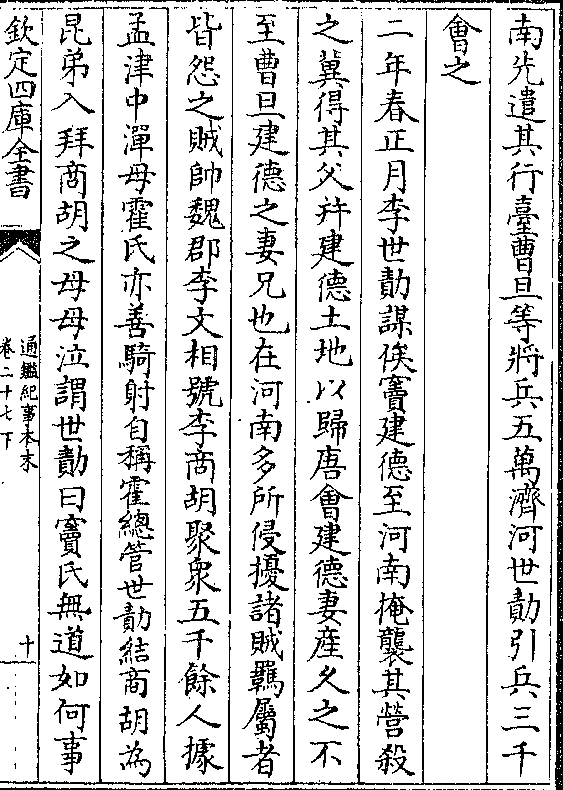 南先遣其行臺曹旦等將兵五萬濟河世勣引兵三千
會之
二年春正月李世勣謀俟竇建德至河南掩襲其營殺
之冀得其父幷建德土地以歸唐會建德妻産久之不
至曹旦建德之妻兄也在河南多所侵擾諸賊羈屬者
皆怨之賊帥魏郡李文相號李商胡聚衆五千餘人據
孟津中潬母霍氏亦善騎射自稱霍總管世勣結商胡為
昆弟入拜商胡之母母泣謂世勣曰竇氏無道如何事
欽定四庫全書
通鑑紀事本末
卷二十七下
十